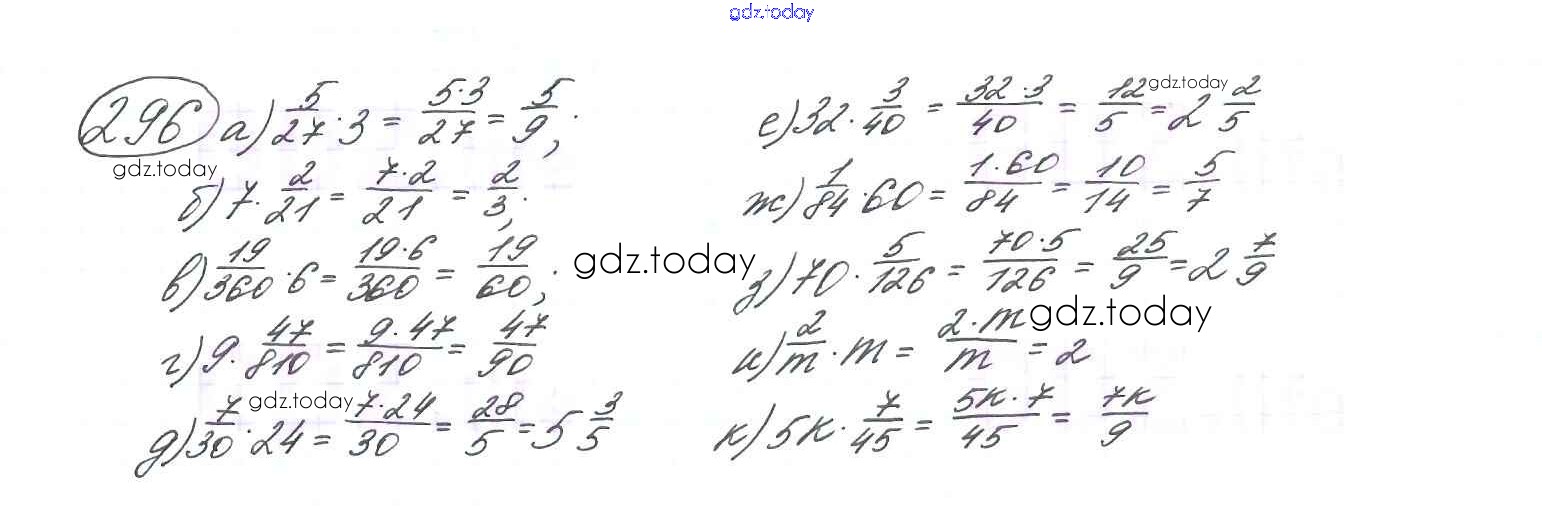 gdz.today
296 а) 5/27 · 3 = 5·3/27 = 5/9;
gdz.today
б) 7 · 2/21 = 7·2/21 = 2/3;
в) 19/360 · 6 = 19·6/360 = 19/60;
gdz.today
г) 9 · 47/810 = 9·47/810 = 47/90
gdz.today
д) 7/30 · 24 = 7·24/30 = 28/5 = 5 3/5
е) 32 · 3/40 = 32·3/40 = 12/5 = 2 2/5
gdz.today
ж) 1/84 · 60 = 1·60/84 = 10/14 = 5/7
з) 70 · 5/126 = 70·5/126 = 25/9 = 2 7/9
gdz.today
и) 2/m · m = 2·m/m = 2
к) 5к · 7/45 = 5к·7/45 = 7к/9